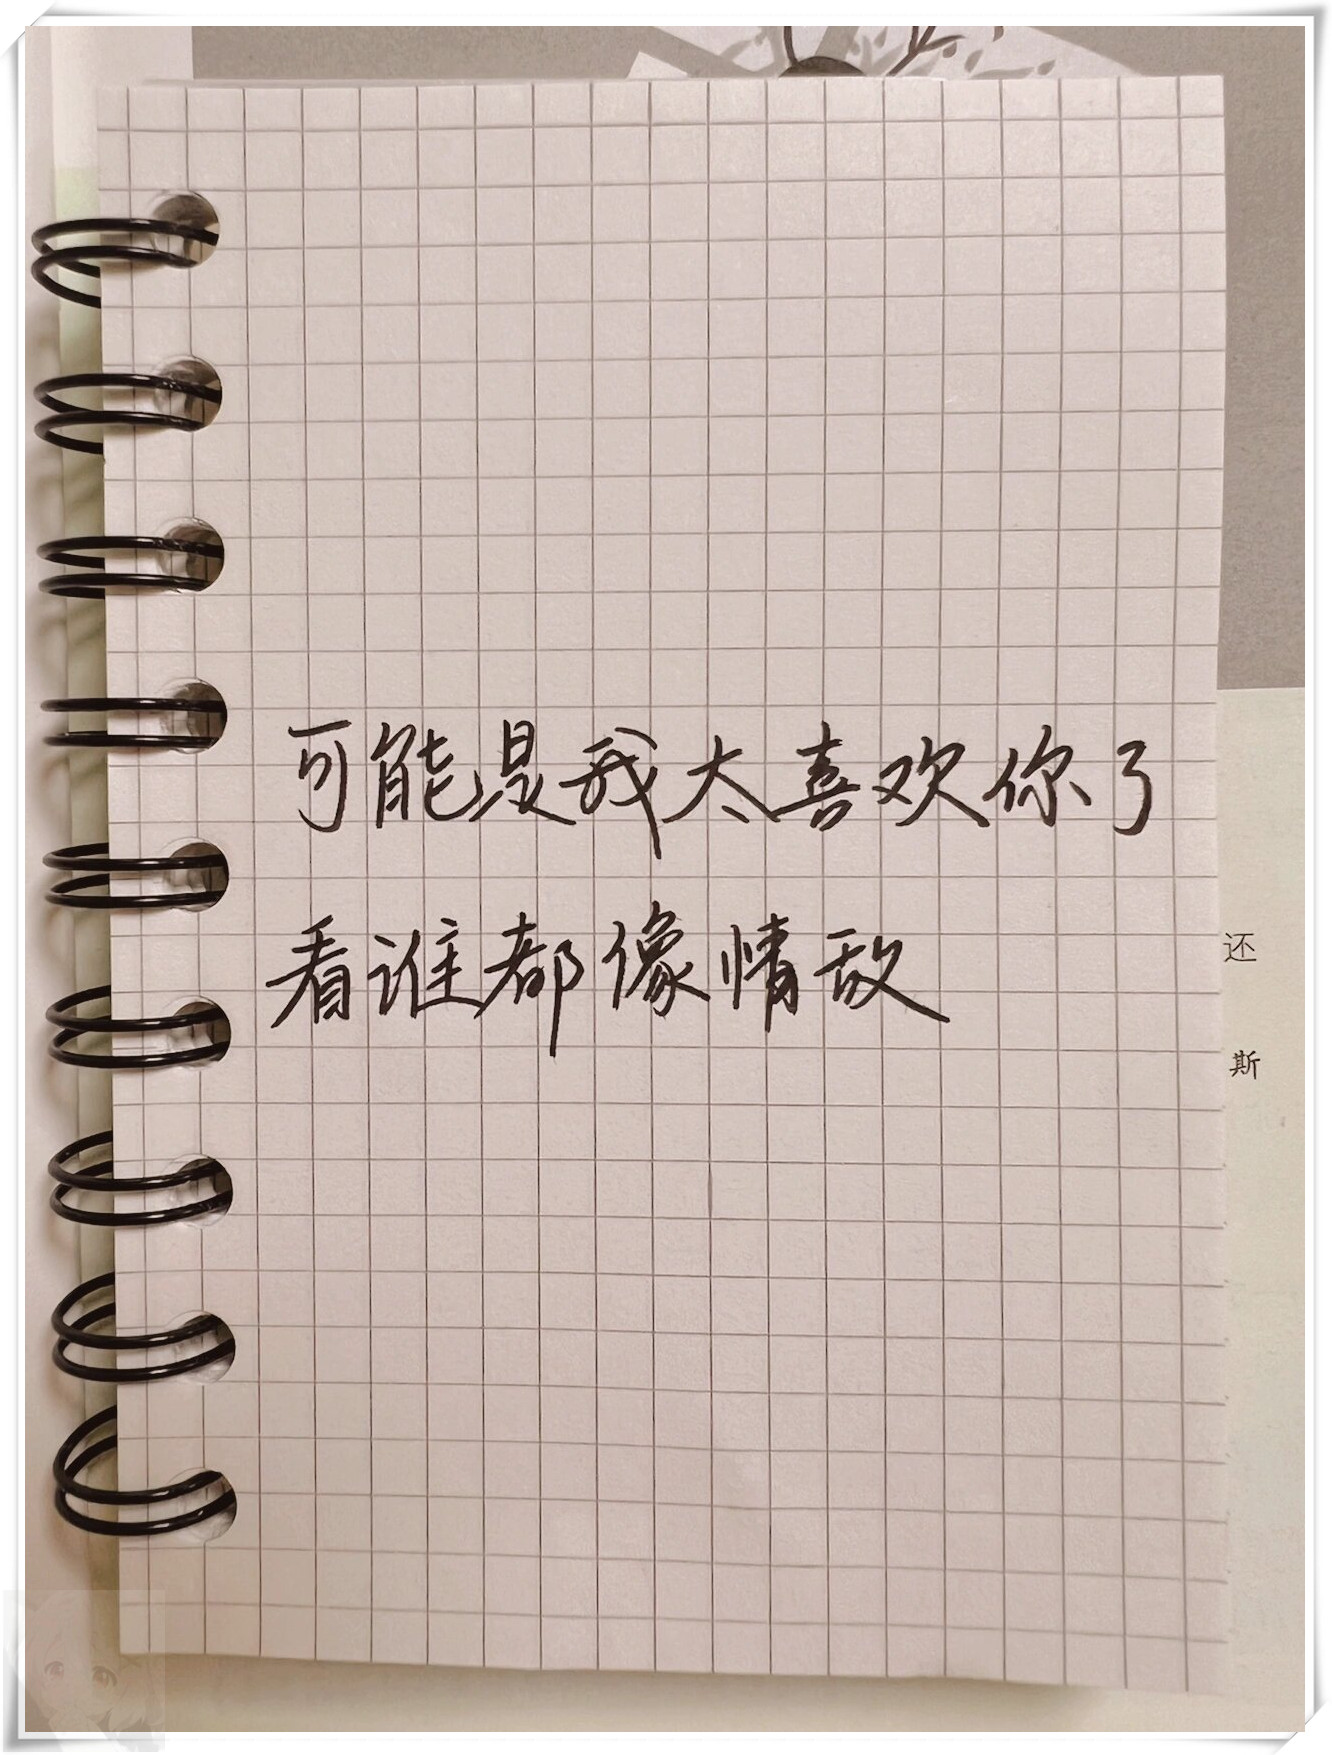 可能是我太喜欢你了
看谁都像情敌
还
斯